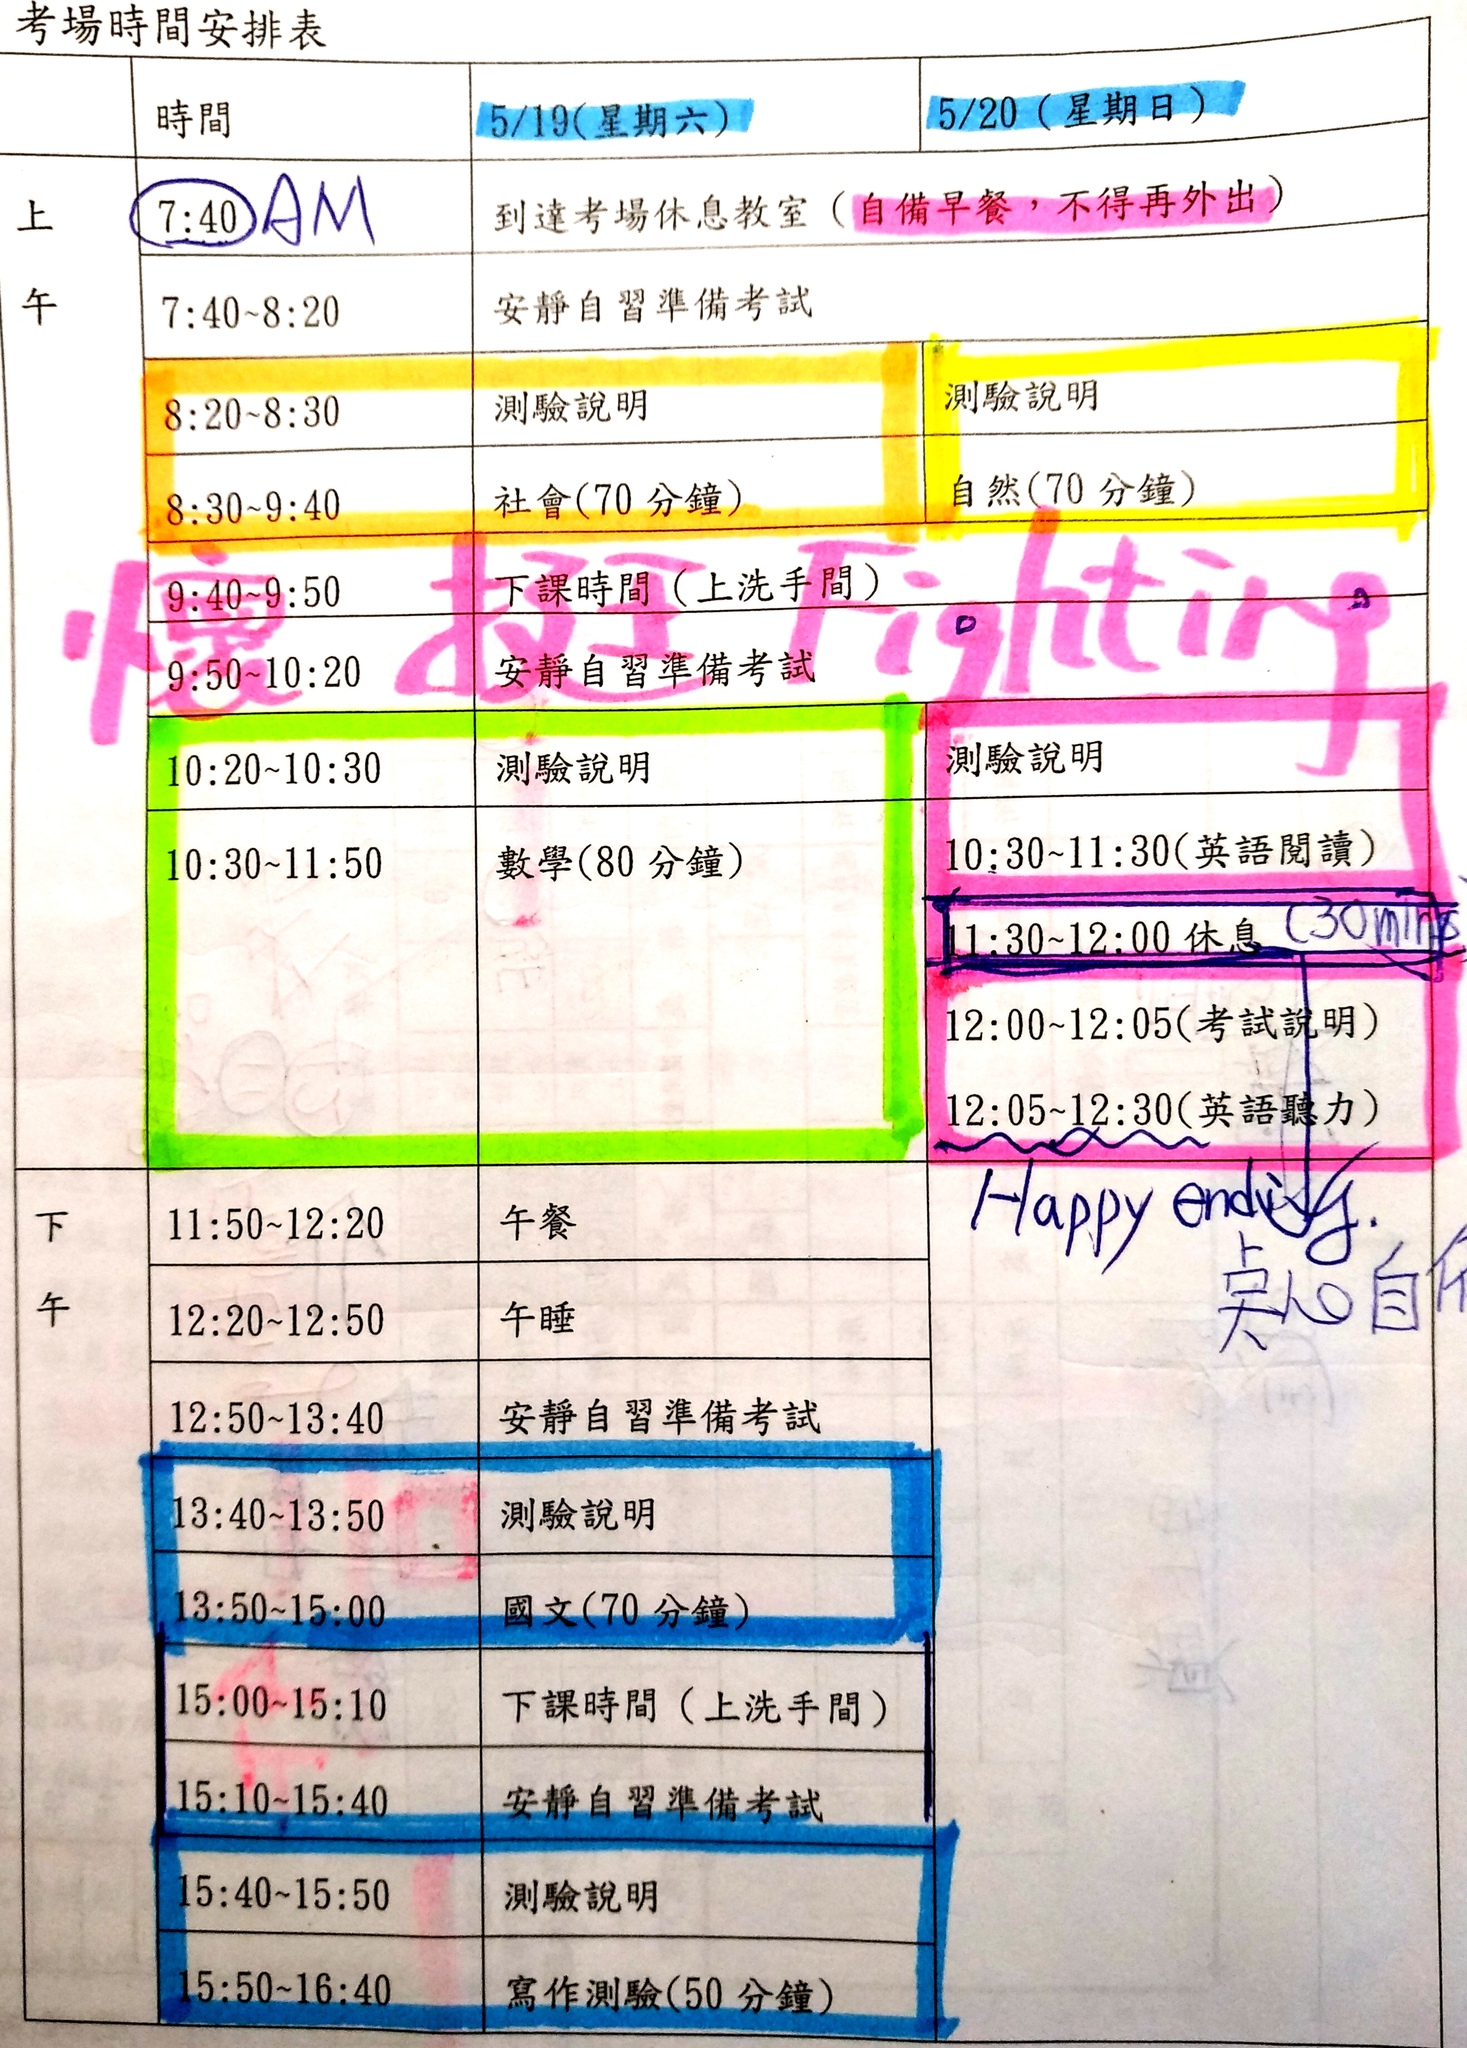 考場時間安排表
時間 5/19(星期六) 5/20（星期日）
上
午
7:40 AM 到達考場休息教室（自備早餐，不得再外出）
7:40~8:20 安靜自習準備考試
8:20~8:30 測驗說明 測驗說明
8:30~9:40 社會(70 分鐘) 自然(70 分鐘)
9:40~9:50 下課時間（上洗手間）
懷 挺 Fighting
9:50~10:20 安靜自習準備考試
10:20~10:30 測驗說明 測驗說明
10:30~11:50 數學(80 分鐘) 10:30~11:30(英語閱讀)
11:30~12:00 休息 (30mins
12:00~12:05(考試說明)
12:05~12:30(英語聽力)
Happy ending.
點心自
下
午
11:50~12:20 午餐
12:20~12:50 午睡
12:50~13:40 安靜自習準備考試
13:40~13:50 測驗說明
13:50~15:00 國文(70 分鐘)
15:00~15:10 下課時間（上洗手間）
15:10~15:40 安靜自習準備考試
15:40~15:50 測驗說明
15:50~16:40 寫作測驗(50 分鐘)